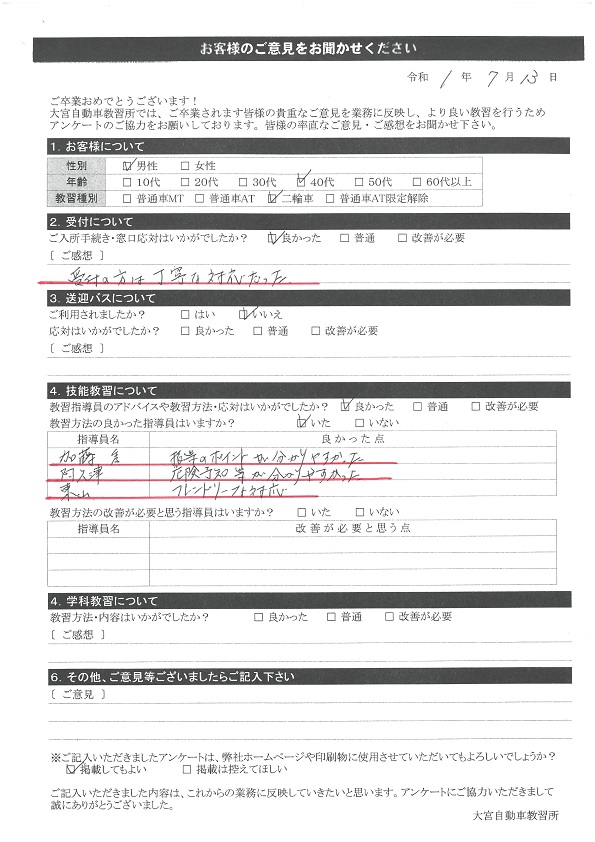 お客様のご意見をお聞かせください
令和 1 年 7 月 13 日
ご卒業おめでとうございます!
大宮自動車教習所では、ご卒業されます皆様の貴重なご意見を業務に反映し、より良い教習を行うため
アンケートのご協力をお願いしております。皆様の率直なご意見・ご感想をお聞かせ下さい。
1. お客様について
性別 ☑男性 □女性
年齢 □10代 □20代 □30代 ☑40代 □50代 □60代以上
教習種別 □普通車MT □普通車AT ☑二輪車 □普通車AT限定解除
2. 受付について
ご入所手続き・窓口応対はいかがでしたか? ☑良かった □普通 □改善が必要
[ ご感想 ]
受付の方は丁寧な対応だった。
3. 送迎バスについて
ご利用されましたか? □はい ☑いいえ
応対はいかがでしたか? □良かった □普通 □改善が必要
[ ご感想 ]
4. 技能教習について
教習指導員のアドバイスや教習方法・応対はいかがでしたか? ☑良かった □普通 □改善が必要
教習方法の良かった指導員はいますか? ☑いた □いない
指導員名 良かった点
加藤 指導のポイントが分かりやすかった
阿久津 危険予知等が分かりやすかった
東山 フレンドリーな対応
教習方法の改善が必要と思う指導員はいますか? □いた □いない
指導員名 改善が必要と思う点
4. 学科教習について
教習方法・内容はいかがでしたか? □良かった □普通 □改善が必要
[ ご感想 ]
6. その他、ご意見等ございましたらご記入下さい
[ ご意見 ]
※ご記入いただきましたアンケートは、弊社ホームページや印刷物に使用させていただいてもよろしいでしょうか?
☑掲載してもよい □掲載は控えてほしい
ご記入いただきました内容は、これからの業務に反映していきたいと思います。アンケートにご協力いただきまして
誠にありがとうございました。
大宮自動車教習所